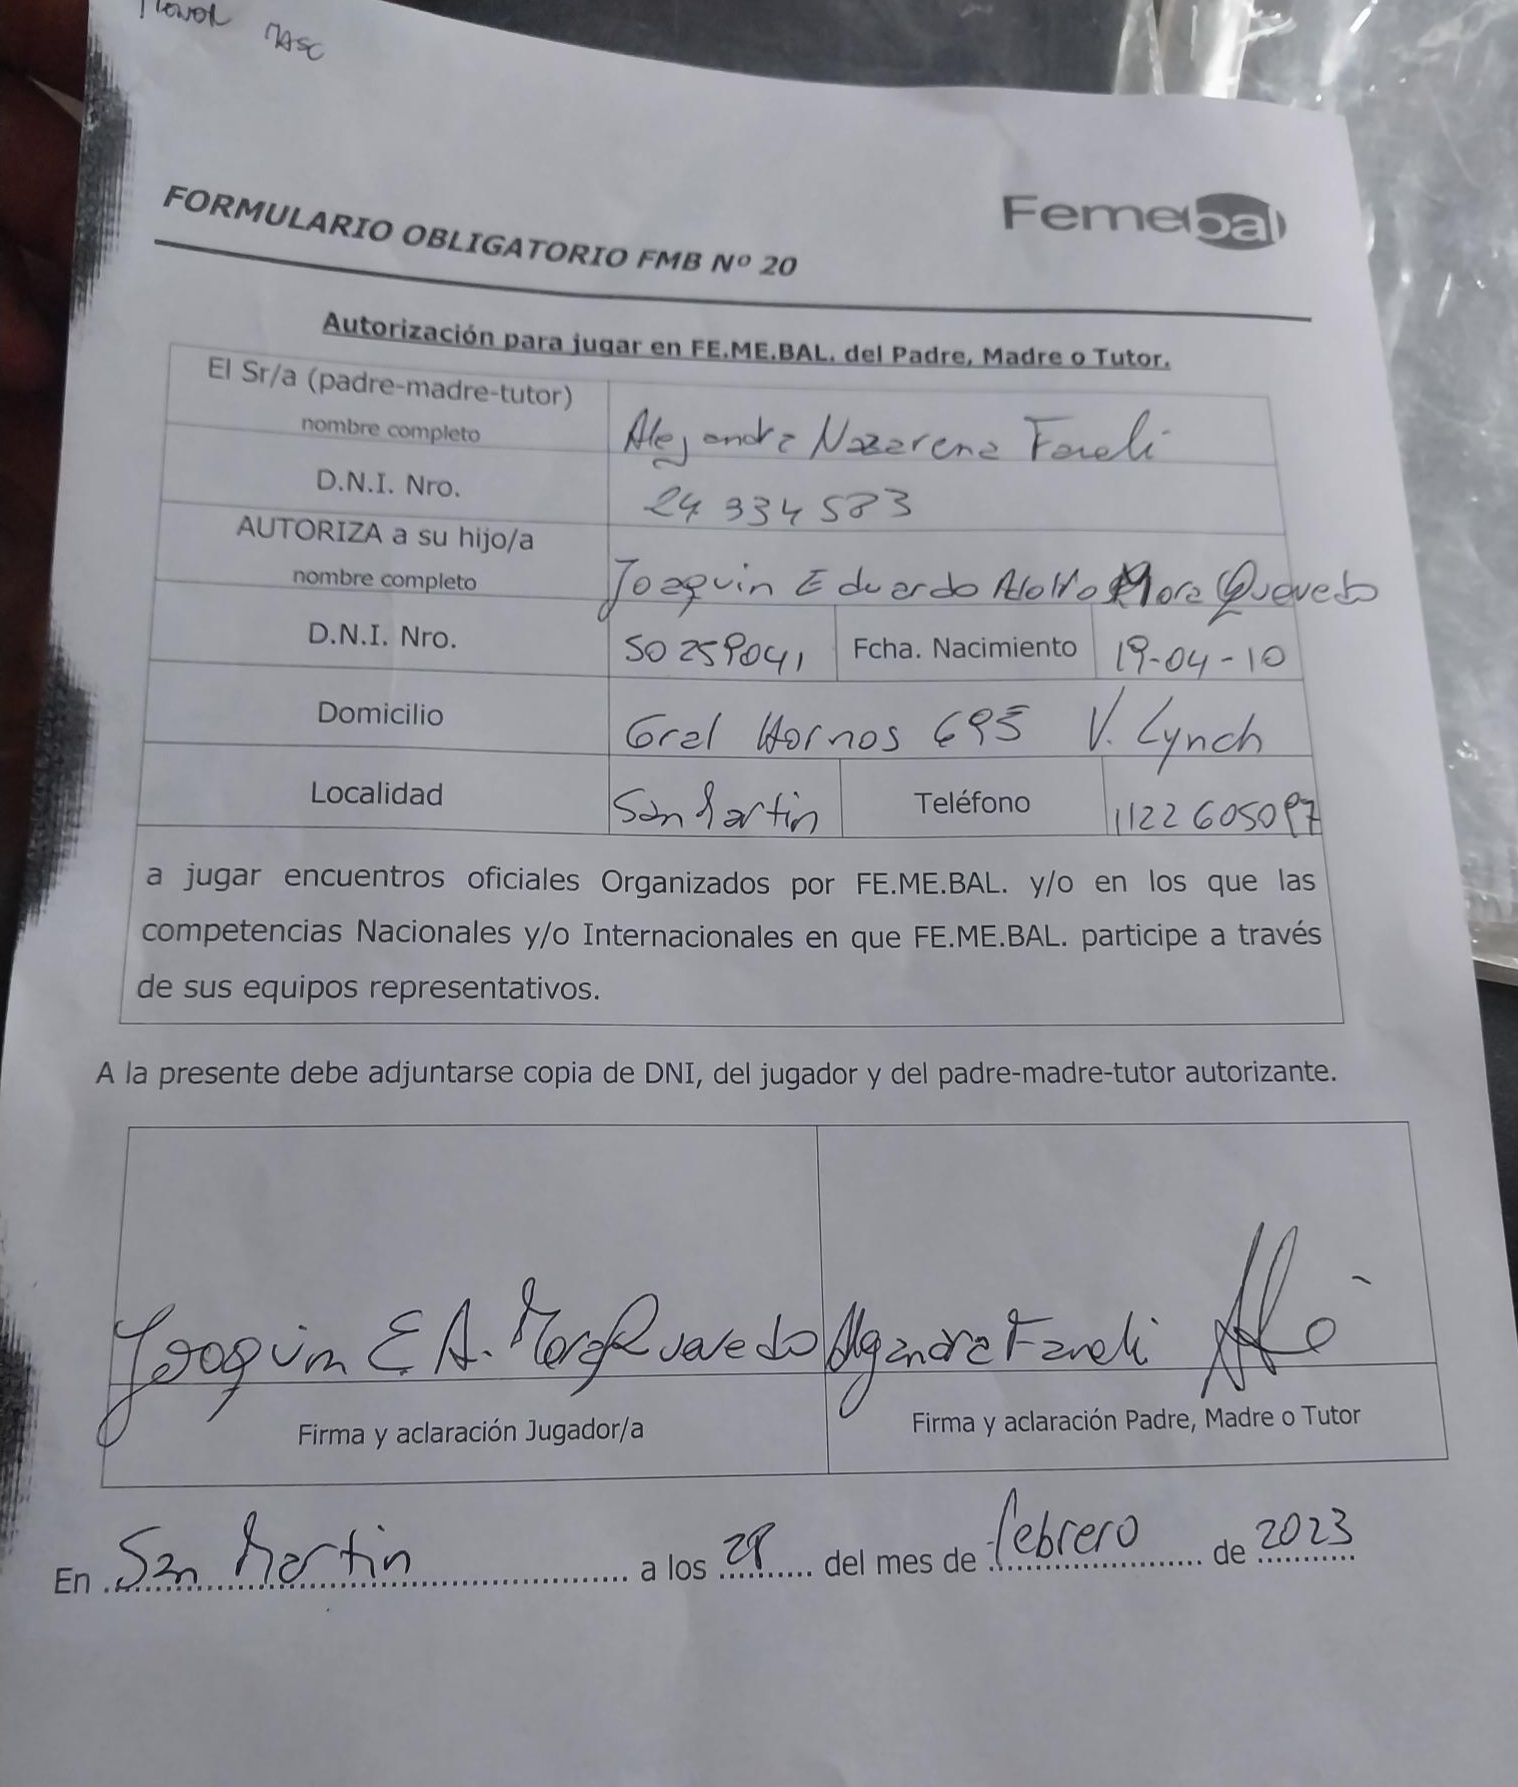 Menor Masc
Femebal
FORMULARIO OBLIGATORIO FMB Nº 20
Autorización para jugar en FE.ME.BAL. del Padre, Madre o Tutor.
El Sr/a (padre-madre-tutor)
nombre completo
Alejandra Nazarena Faneli
D.N.I. Nro.
24 334 583
AUTORIZA a su hijo/a
nombre completo
Joaquin Eduardo Adolfo Mora Quevedo
D.N.I. Nro.
50 259041
Fcha. Nacimiento
19-04-10
Domicilio
Gral Hornos 695 V. Lynch
Localidad
San Martin
Teléfono
1122605097
a jugar encuentros oficiales Organizados por FE.ME.BAL. y/o en los que las
competencias Nacionales y/o Internacionales en que FE.ME.BAL. participe a través
de sus equipos representativos.
A la presente debe adjuntarse copia de DNI, del jugador y del padre-madre-tutor autorizante.
Joaquin E A. Mora Quevedo
Alejandra Faneli
Firma y aclaración Jugador/a
Firma y aclaración Padre, Madre o Tutor
En San Martin a los 28 del mes de febrero de 2023